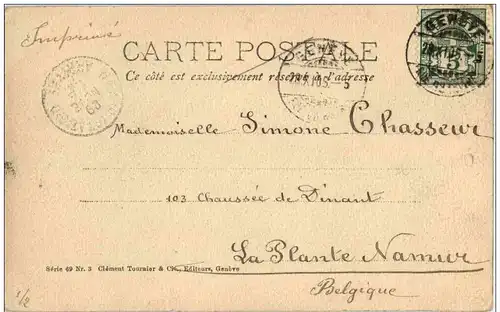 Imprimé
CARTE POSTALE
Ce côté est exclusivement réservé à l'adresse
GENEVE
5
GENEVE
20.XI.05.-5
Mademoiselle Simone Chasseur
103 Chaussée de Dinant
La Plante Namur
Série 69 Nr. 3 Clément Tournier & Cie., Editeurs, Genève
Belgique
1/2